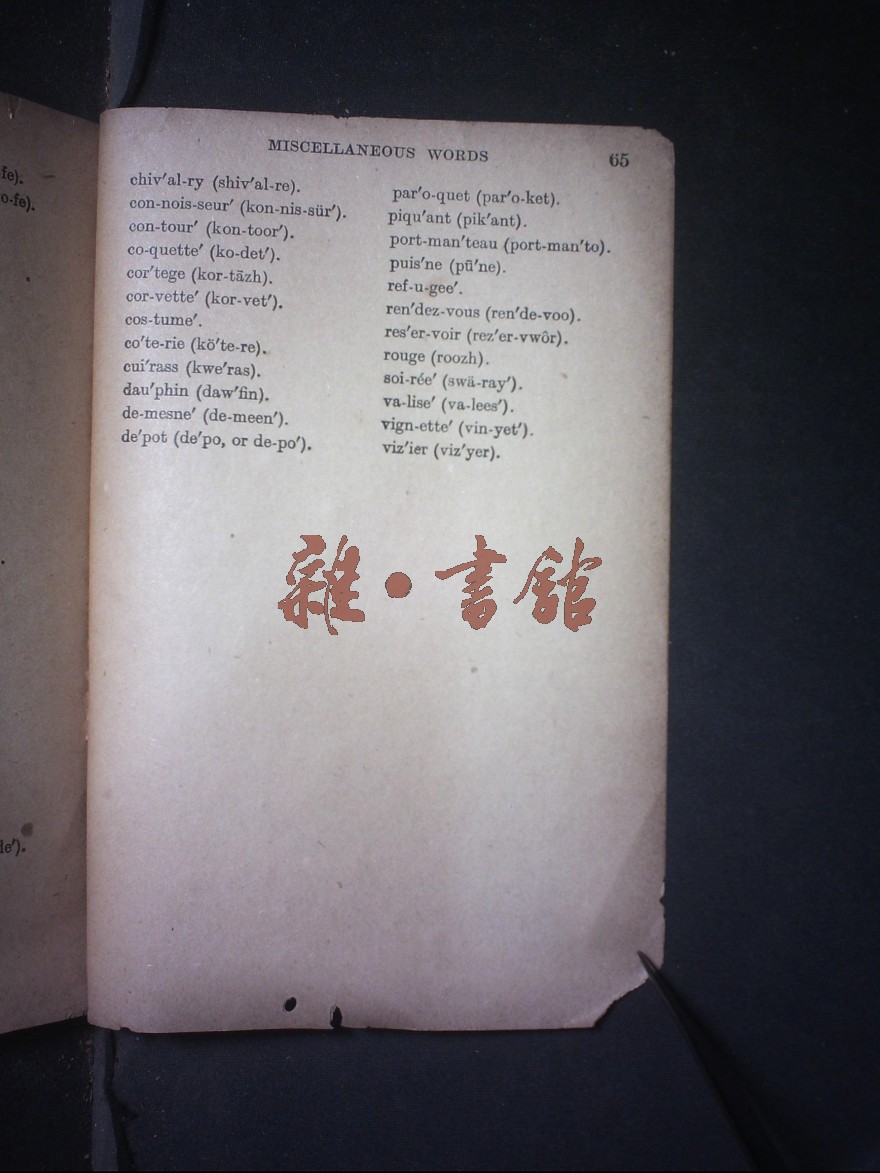 fe).
o-fe).
le').
MISCELLANEOUS WORDS 65
chiv'al-ry (shiv'al-re).
con-nois-seur' (kon-nis-sür').
con-tour' (kon-toor').
co-quette' (ko-det').
cor'tege (kor-tāzh).
cor-vette' (kor-vet').
cos-tume'.
co'te-rie (kō'te-re).
cui'rass (kwe'ras).
dau'phin (daw'fin).
de-mesne' (de-meen').
de'pot (de'po, or de-po').
par'o-quet (par'o-ket).
piqu'ant (pik'ant).
port-man'teau (port-man'to).
puis'ne (pū'ne).
ref-u-gee'.
ren'dez-vous (ren'de-voo).
res'er-voir (rez'er-vwôr).
rouge (roozh).
soi-rée' (swä-ray').
va-lise' (va-lees').
vign-ette' (vin-yet').
viz'ier (viz'yer).
雜·書館